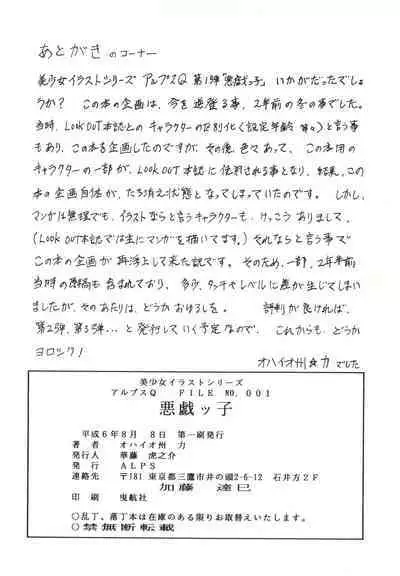 あとがきのコーナー
美少女イラストシリーズ アルプスQ 第1弾「悪戯っ子」いかがだったでしょ
うか? この本の企画は、今を遡る事、2年前の冬の事でした。
当時、LOOK OUT本誌との キャラクターの区別化(設定年齢 等々)と言う事
もあり、この本を企画したのですが、その後、色々あって、この本用の
キャラクターの一部が、LOOK OUT本誌に使用される事となり、結果、この
本の企画自体が、たち消え状態となってしまっていたのです。しかし、
マンガは無理でも、イラストならと言うキャラクターも、けっこうありまして、
(LOOK OUT本誌では主にマンガを描いてます。)それならと言う事で
この本の企画が再浮上して来た訳です。そのため、一部、2年前
当時の原稿も含まれており、多少、タッチやレベルに差が生じてしまい
ましたが、そのあたりは、どうかお許しを。 評判が良ければ、
第2弾、第3弾…と発行して いく予定なので、これからも、どうか
ヨロシク!
オハイオ州☆力でした
美少女イラストシリーズ
アルプスQ FILE NO. 001
悪戯ッ子
平成6年8月 8日 第一刷発行
著者 オハイオ州 力
発行人 華藤 虎之介
発行 ALPS
連絡先 〒181 東京都三鷹市井の頭2-6-12 石井方2F
加藤 達巳
印刷 曳航社
○乱丁、落丁本は在庫のある限りお取替えいたします。
○禁無断転載